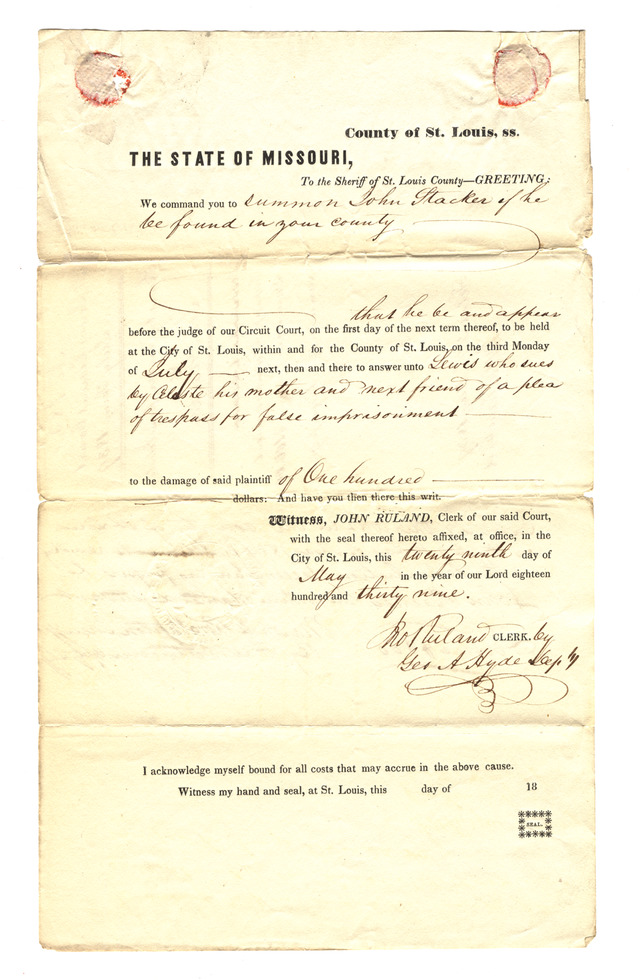 County of St. Louis, ss.
THE STATE OF MISSOURI,
To the Sheriff of St. Louis County—GREETING:
We command you to summon John Stacker if he
be found in your county
that he be and appear
before the judge of our Circuit Court, on the first day of the next term thereof, to be held
at the City of St. Louis, within and for the County of St. Louis, on the third Monday
of July next, then and there to answer unto Lewis who sues
by Celeste his mother and next friend of a plea
of trespass for false imprisonment
to the damage of said plaintiff of One hundred
dollars: And have you then there this writ.
Witness, JOHN RULAND, Clerk of our said Court,
with the seal thereof hereto affixed, at office, in the
City of St. Louis, this twenty ninth day of
May in the year of our Lord eighteen
hundred and thirty nine.
Jno Ruland CLERK. by
Geo A Hyde Depty
I acknowledge myself bound for all costs that may accrue in the above cause.
Witness my hand and seal, at St. Louis, this day of 18
SEAL.